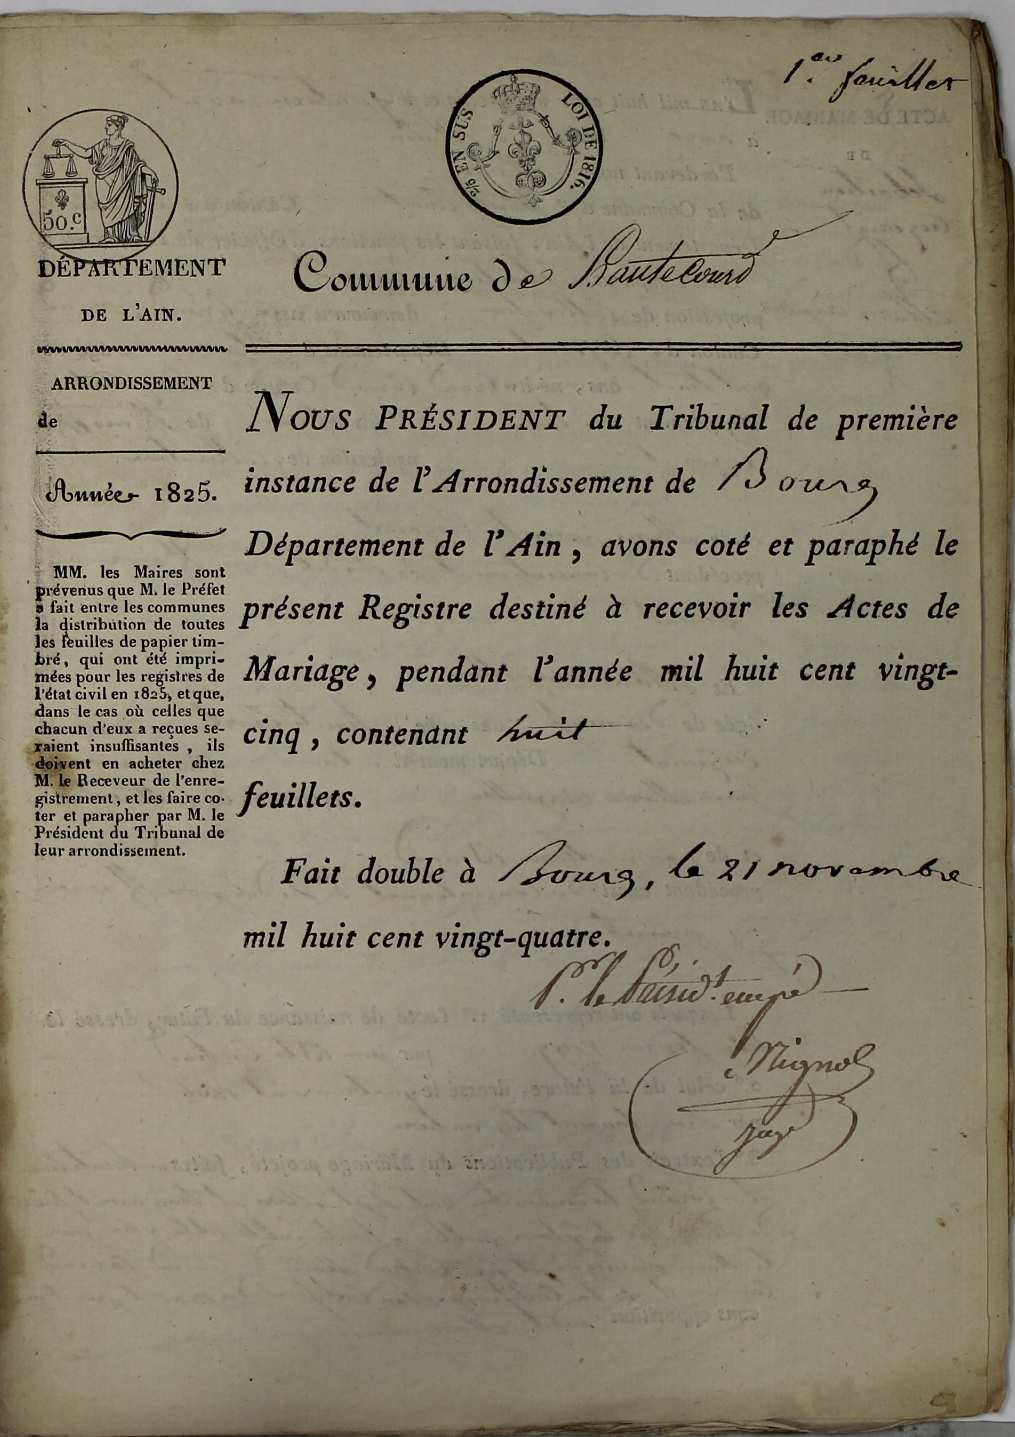 1.er feuillet
2/5 EN SUS
LOI DE 1816.
50.c
DÉPARTEMENT
DE L'AIN.
Commune de hautecourd
ARRONDISSEMENT
de
Année 1825.
MM. les Maires sont
prévenus que M. le Préfet
a fait entre les communes
la distribution de toutes
les feuilles de papier tim-
bré, qui ont été impri-
mées pour les registres de
l'état civil en 1825, et que,
dans le cas où celles que
chacun d'eux a reçues se-
raient insuffisantes, ils
doivent en acheter chez
M. le Receveur de l'enre-
gistrement, et les faire co-
ter et parapher par M. le
Président du Tribunal de
leur arrondissement.
NOUS PRÉSIDENT du Tribunal de première
instance de l'Arrondissement de Bourg
Département de l'Ain, avons coté et paraphé le
présent Registre destiné à recevoir les Actes de
Mariage, pendant l'année mil huit cent vingt-
cinq, contenant huit
feuillets.
Fait double à Bourg, le 21 novembre
mil huit cent vingt-quatre.
P.r le Présid.t empé
juge